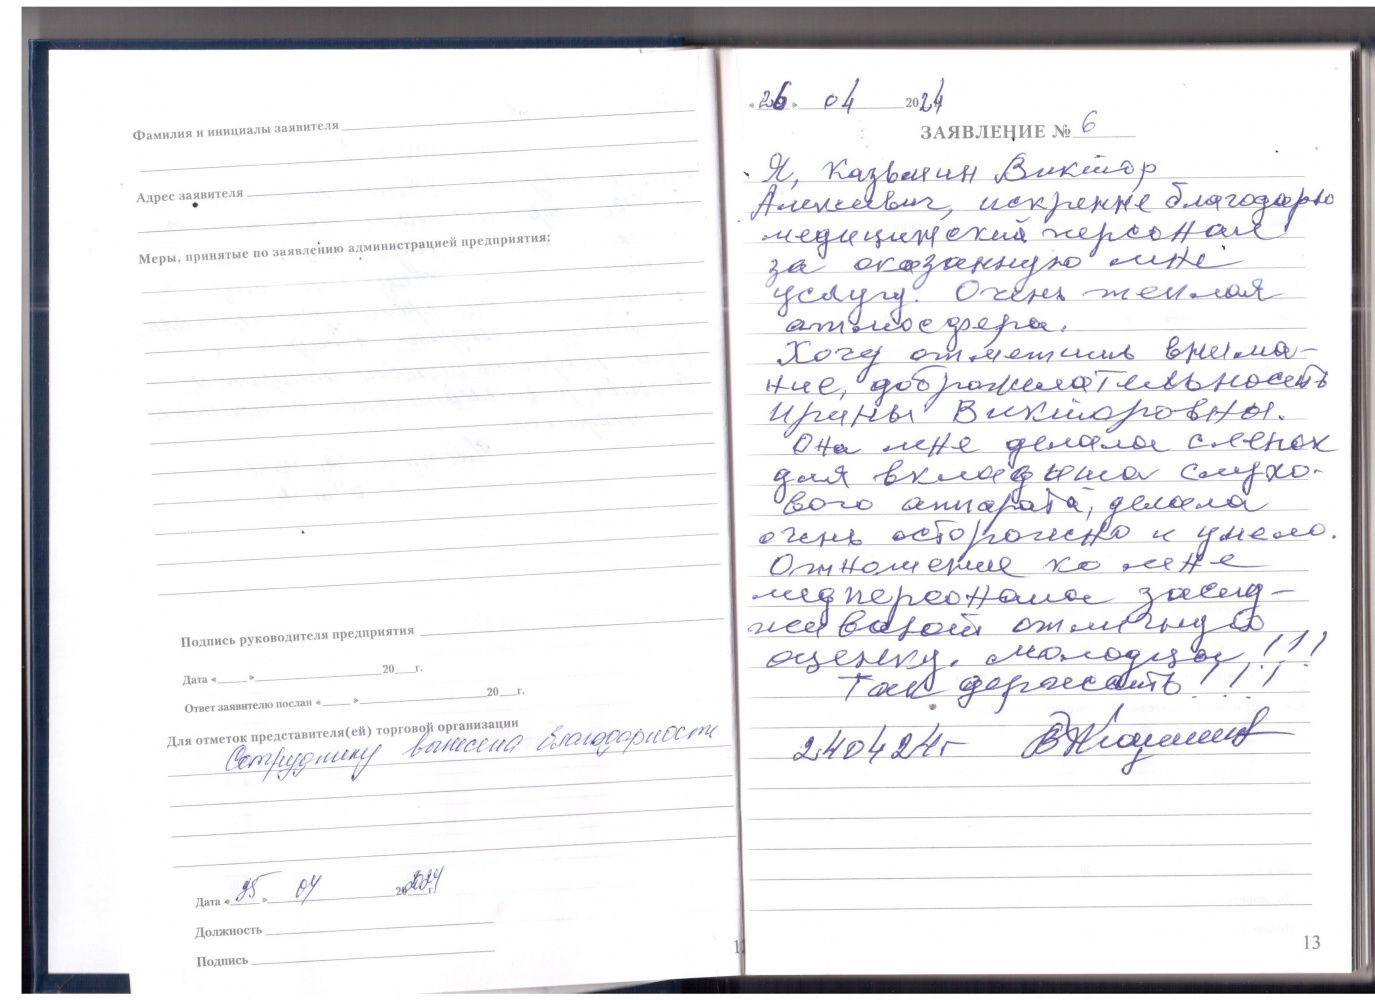 Фамилия и инициалы заявителя
Адрес заявителя
Меры, принятые по заявлению администрацией предприятия:
Подпись руководителя предприятия
Дата « » 20 г.
Ответ заявителю послан « » 20 г.
Для отметок представителя(ей) торговой организации
Сотруднику вынесена благодарность
Дата « 25 » 04 2024 г.
Должность
Подпись
« 26 » 04 2024
ЗАЯВЛЕНИЕ № 6
Я, Виктор
Алексеевич, искренне благодарю
медицинский персонал
за оказанную мне
услугу. Очень теплая
атмосфера.
Хочу отметить внима-
ние, доброжелательность
Ирины Викторовны.
Она мне делала слепок
для вкладыша слухо-
вого аппарата, делала
очень осторожно и умело.
Отношение ко мне
медперсонала заслу-
живает отличную
оценку. Молодцы!!!
Так держать!!!
240424г
13